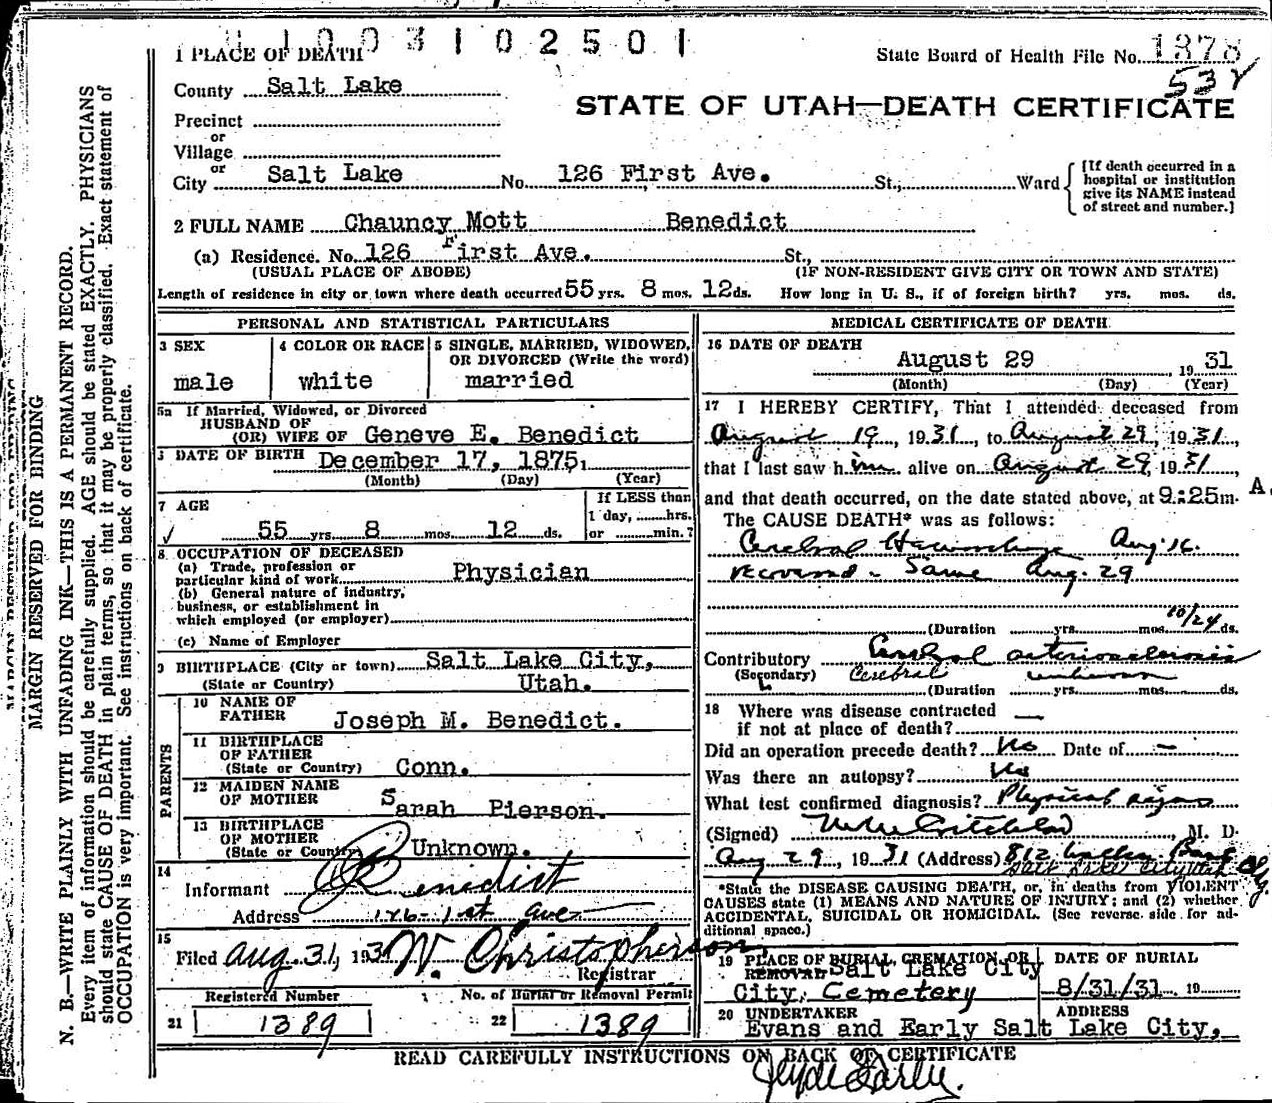 1003102501
1 PLACE OF DEATH
State Board of Health File No. 1378
532
County Salt Lake
STATE OF UTAH—DEATH CERTIFICATE
Precinct
or
Village
or
City Salt Lake No. 126 First Ave. St., Ward
[If death occurred in a
hospital or institution
give its NAME instead
of street and number.]
2 FULL NAME Chauncy Mott Benedict
(a) Residence. No. 126 First Ave. St.,
(USUAL PLACE OF ABOBE) (IF NON-RESIDENT GIVE CITY OR TOWN AND STATE)
Length of residence in city or town where death occurred 55 yrs. 8 mos. 12 ds. How long in U. S., if of foreign birth? yrs. mos. ds.
PERSONAL AND STATISTICAL PARTICULARS
3 SEX 4 COLOR OR RACE 5 SINGLE, MARRIED, WIDOWED,
OR DIVORCED (Write the word)
male white married
5a If Married, Widowed, or Divorced
HUSBAND OF
(OR) WIFE OF Geneve E. Benedict
DATE OF BIRTH December 17, 1875,
(Month) (Day) (Year)
7 AGE
If LESS than
1 day, hrs.
55 yrs. 8 mos. 12 ds. or min.?
8 OCCUPATION OF DECEASED
(a) Trade, profession or
particular kind of work Physician
(b) General nature of industry,
business, or establishment in
which employed (or employer)
(c) Name of Employer
9 BIRTHPLACE (City or town) Salt Lake City,
(State or Country) Utah.
PARENTS
10 NAME OF
FATHER Joseph M. Benedict.
11 BIRTHPLACE
OF FATHER
(State or Country) Conn.
12 MAIDEN NAME
OF MOTHER Sarah Pierson.
13 BIRTHPLACE
OF MOTHER
(State or Country) Unknown.
14
Informant Benedict
Address 126-1st ave
15
Filed Aug. 31, 1931 W. Christopherson,
Registrar
Registered Number No. of Burial or Removal Permit
21 1389 22 1389
MEDICAL CERTIFICATE OF DEATH
16 DATE OF DEATH
August 29, 1931
(Month) (Day) (Year)
17 I HEREBY CERTIFY, That I attended deceased from
August 19, 1931, to August 29, 1931,
that I last saw him alive on August 29, 1931,
and that death occurred, on the date stated above, at 9:25m. A.
The CAUSE DEATH* was as follows:
Cerebral Hemorrhage Aug 16.
recovered - Same Aug. 29
(Duration yrs. mos. 10/24 ds.
Contributory Cerebral arteriosclerosis
(Secondary) Cerebral unknown
(Duration yrs. mos. ds.
18 Where was disease contracted
if not at place of death? —
Did an operation precede death? No Date of —
Was there an autopsy? No
What test confirmed diagnosis? Physical signs
(Signed) M. D.
Aug 29, 1931 (Address) 812 Walker Bank
Salt Lake City Utah
*State the DISEASE CAUSING DEATH, or, in deaths from VIOLENT
CAUSES state (1) MEANS AND NATURE OF INJURY; and (2) whether
ACCIDENTAL, SUICIDAL OR HOMICIDAL. (See reverse side for ad-
ditional space.)
19 PLACE OF BURIAL, CREMATION OR DATE OF BURIAL
REMOVAL Salt Lake City
City, Cemetery 8/31/31 19
20 UNDERTAKER ADDRESS
Evans and Early Salt Lake City,
READ CAREFULLY INSTRUCTIONS ON BACK OF CERTIFICATE
Clyde Early.
MARGIN RESERVED FOR BINDING
N. B.—WRITE PLAINLY WITH UNFADING INK—THIS IS A PERMANENT RECORD.
Every item of information should be carefully supplied. AGE should be stated EXACTLY. PHYSICIANS
should state CAUSE OF DEATH in plain terms, so that it may be properly classified. Exact statement of
OCCUPATION is very important. See instructions on back of certificate.